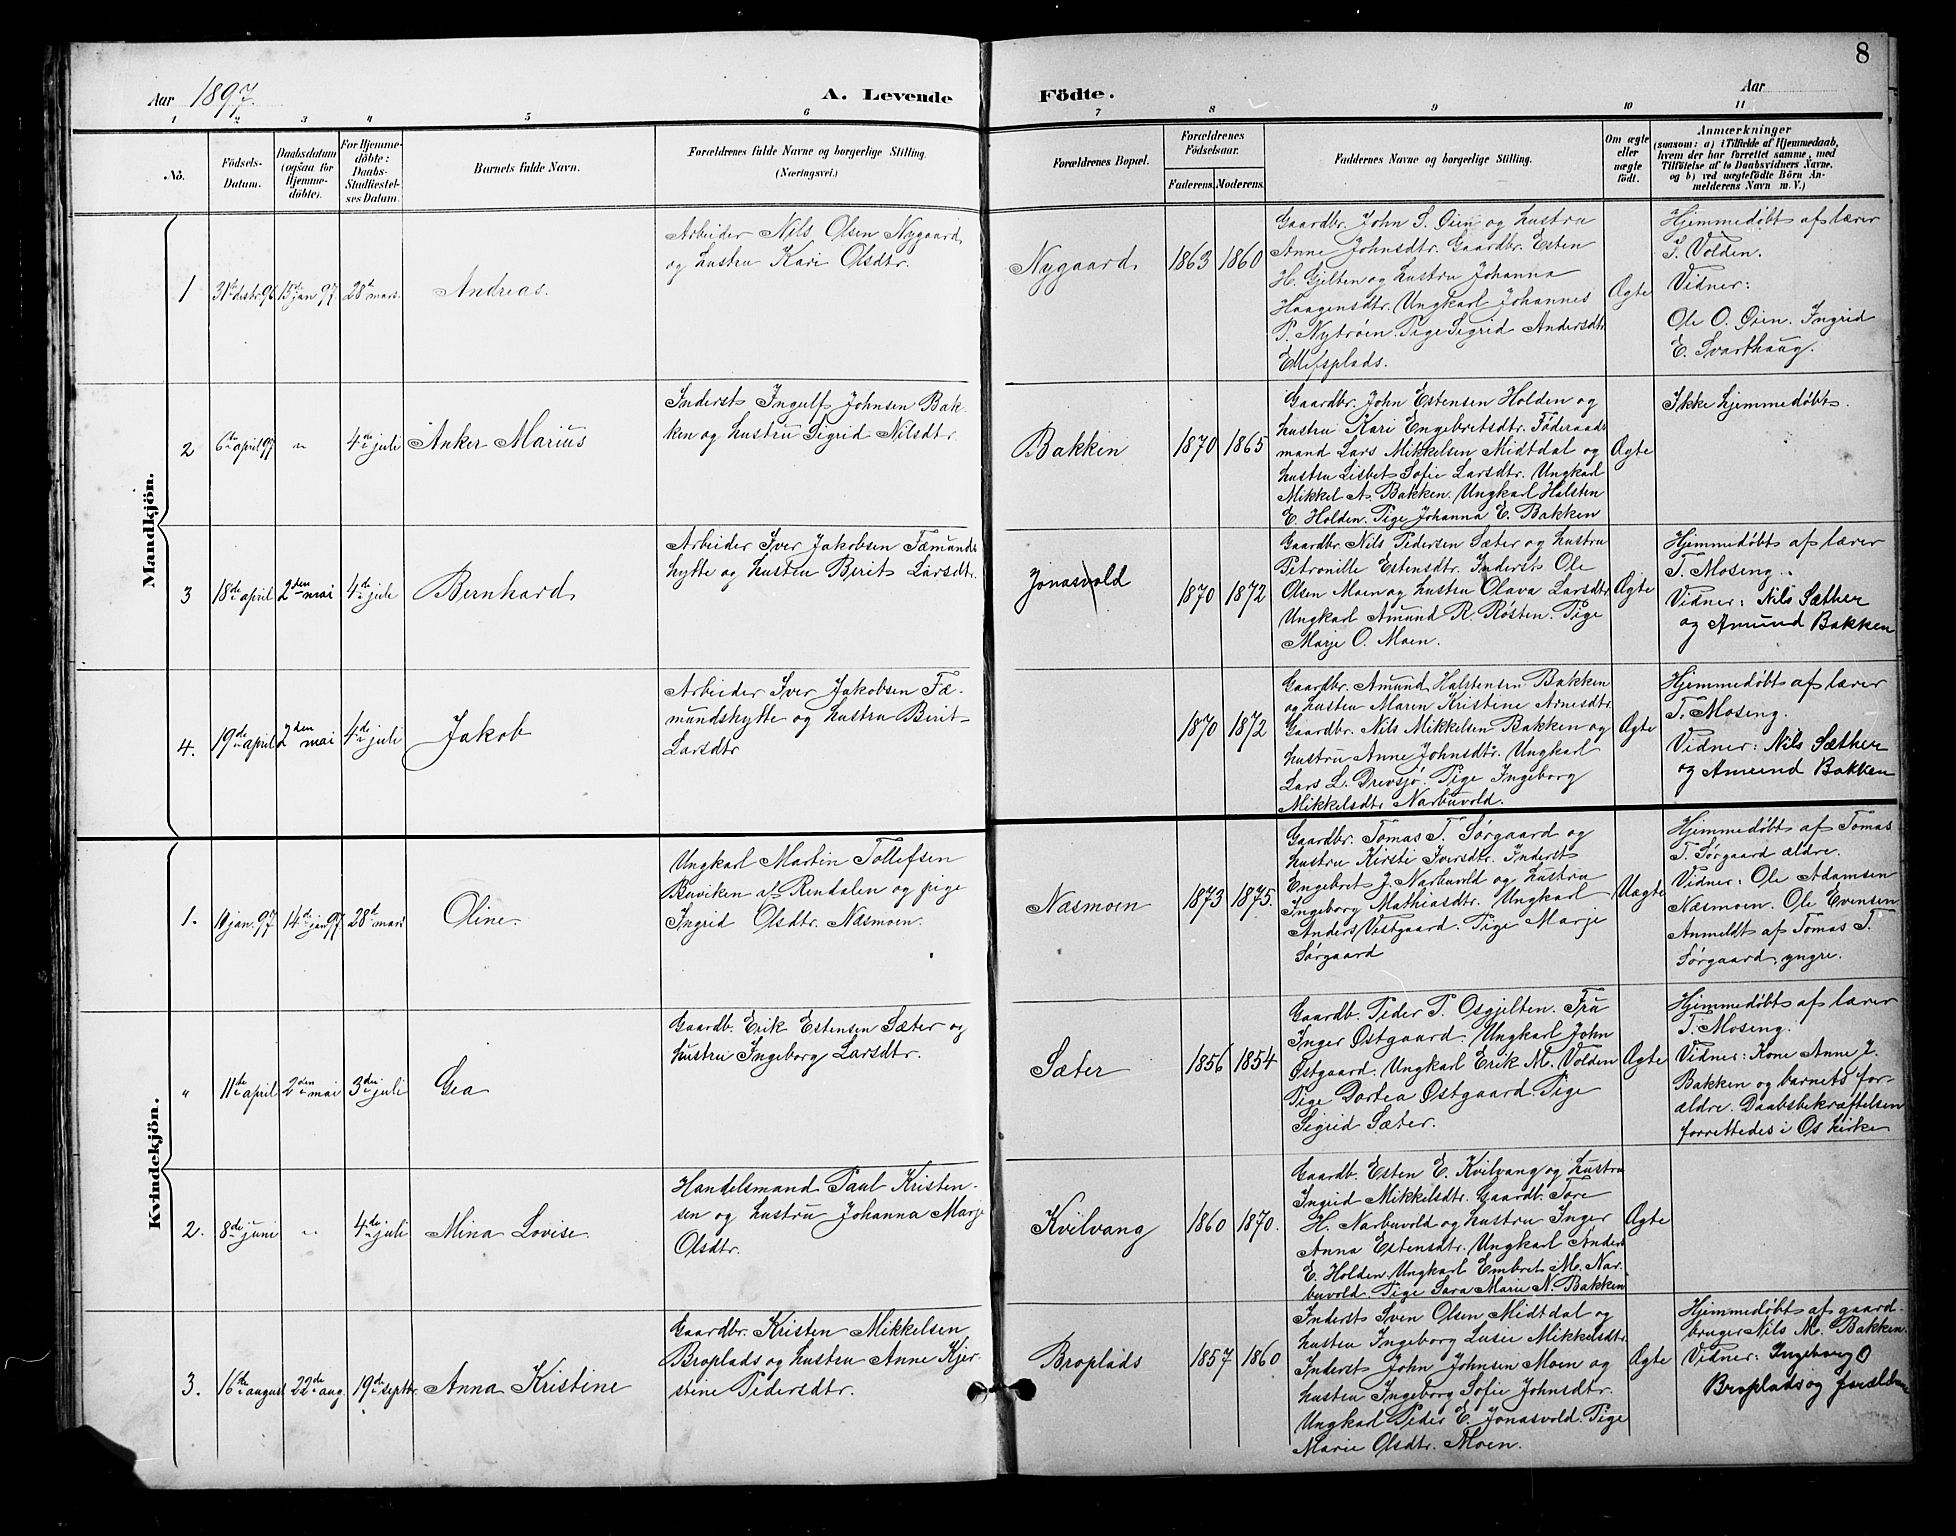 8
Aar 1897.
A. Levende
Födte.
Aar
1 2 3 4 5 6 7 8 9 10 11
No.
Födsels-
Datum.
Daabsdatum
(ogsaa for
Hjemme-
döbte).
For Hjemme-
döbte:
Daabs-
Stadfæstel-
ses Datum.
Barnets fulde Navn.
Forældrenes fulde Navne og borgerlige Stilling.
(Næringsvei.)
Forældrenes Bopæl.
Forældrenes
Födselsaar.
Faderens. Moderens.
Faddernes Navne og borgerlige Stilling.
Om ægte
eller
uægte
födt.
Anmærkninger
(saasom: a) i Tilfælde af Hjemmedaab,
hvem der har forrettet samme, med
Tilföielse af to Daabsvidners Navne.
og b) ved uægtefödte Börn An-
melderens Navn m. V.)
Mandkjön.
1
31te destr. 96
15de jan 97
28de mars.
Andreas.
Arbeider Nils Olsen Nygaard
og hustru Kari Olsdtr.
Nygaard
1863 1860
Gaardbr. John S. Øien og hustru
Anne Johnsdtr. Gaardbr. Esten
H. Gjelten og hustru Johanna
Haagensdtr. Ungkarl Johannes
P. Nytrøen. Pige Sigrid Andersdtr.
Ellefsplads.
Ægte
Hjemmedøbt af lærer
T. Volden.
Vidner:
Ole O. Øien. Ingrid
E. Svarthaug.
2
6te april 97
"
4de juli
Anker Marius
Inderst Ingulf Johnsen Bak-
ken og hustru Sigrid Nilsdtr.
Bakken
1870 1865
Gaardbr. John Estensen Holden og
hustru Kari Engebretsdtr. Føderaads
mand Lars Mikkelsen Midtdal og
hustru Lisbet Sofie Larsdtr. Ungkarl
Mikkel A. Bakken. Ungkarl Halsten
E. Holden. Pige Johanna E. Bakken
Ægte
Ikke hjemmedøbt.
3
18de april
2den mai
4de juli
Bernhard
Arbeider Iver Jakobsen Fæmunds
hytte og hustru Berit Larsdtr.
Jonasvold
1870 1872
Gaardbr. Nils Pedersen Sæter og hustru
Petronille Estensdtr. Inderst Ole
Olsen Moen og hustru Olava Larsdtr.
Ungkarl Amund R. Røsten. Pige
Marje O. Moen.
Ægte
Hjemmedøbt af lærer
T. Moseng.
Vidner: Nils Sæther
og Amund Bakken
4.
19de april
2den mai
4de juli
Jakob
Arbeider Iver Jakobsen Fæ-
mundshytte og hustru Berit
Larsdtr
1870 1872
Gaardbr. Amund Halstensen Bakken
og hustru Maren Kristine Arnesdtr.
Gaardbr. Nils Mikkelsen Bakken og
hustru Anne Johnsdtr. Ungkarl
Lars L. Drevsjø. Pige Ingeborg
Mikkelsdtr. Narbuvold.
Ægte
Hjemmedøbt af lærer
T. Moseng.
Vidner: Nils Sæther
og Amund Bakken
Kvindekjön.
1.
jan. 97
14de jan 97.
28de mars
Oline.
Ungkarl Martin Tollefsen
Buviken af Rendalen og pige
Ingrid Olsdtr. Næsmoen.
Næsmoen
1873 1875.
Gaardbr. Tomas T. Sørgaard og
hustru Kirsti Iversdtr. Inderst
Engebret J. Narbuvold og hustru
Ingeborg Mathiasdtr. Ungkarl
Anders Vestgaard. Pige Marje
Sørgaard
Uægte
Hjemmedøbt af Tomas
T. Sørgaard ældre.
Vidner: Ole Adamsen
Næsmoen. Ole Evensen
Anmeldt af Tomas T.
Sørgaard, yngre.
"
11te april
2den mai
3die juli
Gea
Gaardb. Erik Estensen Sæter og
hustru Ingeborg Larsdtr.
Sæter
1856 1854
Gaardb. Peder P. Osgjelten. Fru
Inger Østgaard. Ungkarl John
Østgaard. Ungkarl Erik M. Volden
Pige Dortea Østgaard. Pige
Sigrid Sæter.
Ægte
Hjemmedøbt af lærer
T. Moseng.
Vidner: Kone Anne J.
Bakken og barnets for-
ældre. Daabsbekræftelsen
forrettedes i Os kirke
2.
8de juni
"
4de juli
Mina Lovise.
Handelsmand Paul Kristen-
sen og hustru Johanna Marje
Olsdtr.
Kvilvang
1860 1870.
Gaardb. Esten E. Kvilvang og hustru
Ingrid Mikkelsdtr. Gaardb. Tore
H. Narbuvold og hustru Inger
Anna Estensdtr. Ungkarl Anders
E. Holden. Ungkarl Embret M. Nar-
buvold. Pige Sara Marie N. Bakken
Ægte
3.
16de august
22de aug.
19de septbr.
Anna Kristine
Gaardbr. Kristen Mikkelsen
Broplads og hustru Anne Kjer-
stine Pedersdtr.
Broplads
1857 1860
Inderst Sven Olsen Midtdal og
hustru Ingeborg Lusie Mikkelsdtr.
Inderst John Johnsen Moen og
hustru Ingeborg Sofie Johnsdtr.
Ungkarl Peder E. Jonasvold. Pige
Marie Olsdtr. Moen.
Ægte
Hjemmedøbt af gaard-
bruger Nils M. Bakken.
Vidner: Ingeborg O
Broplads og forældrene